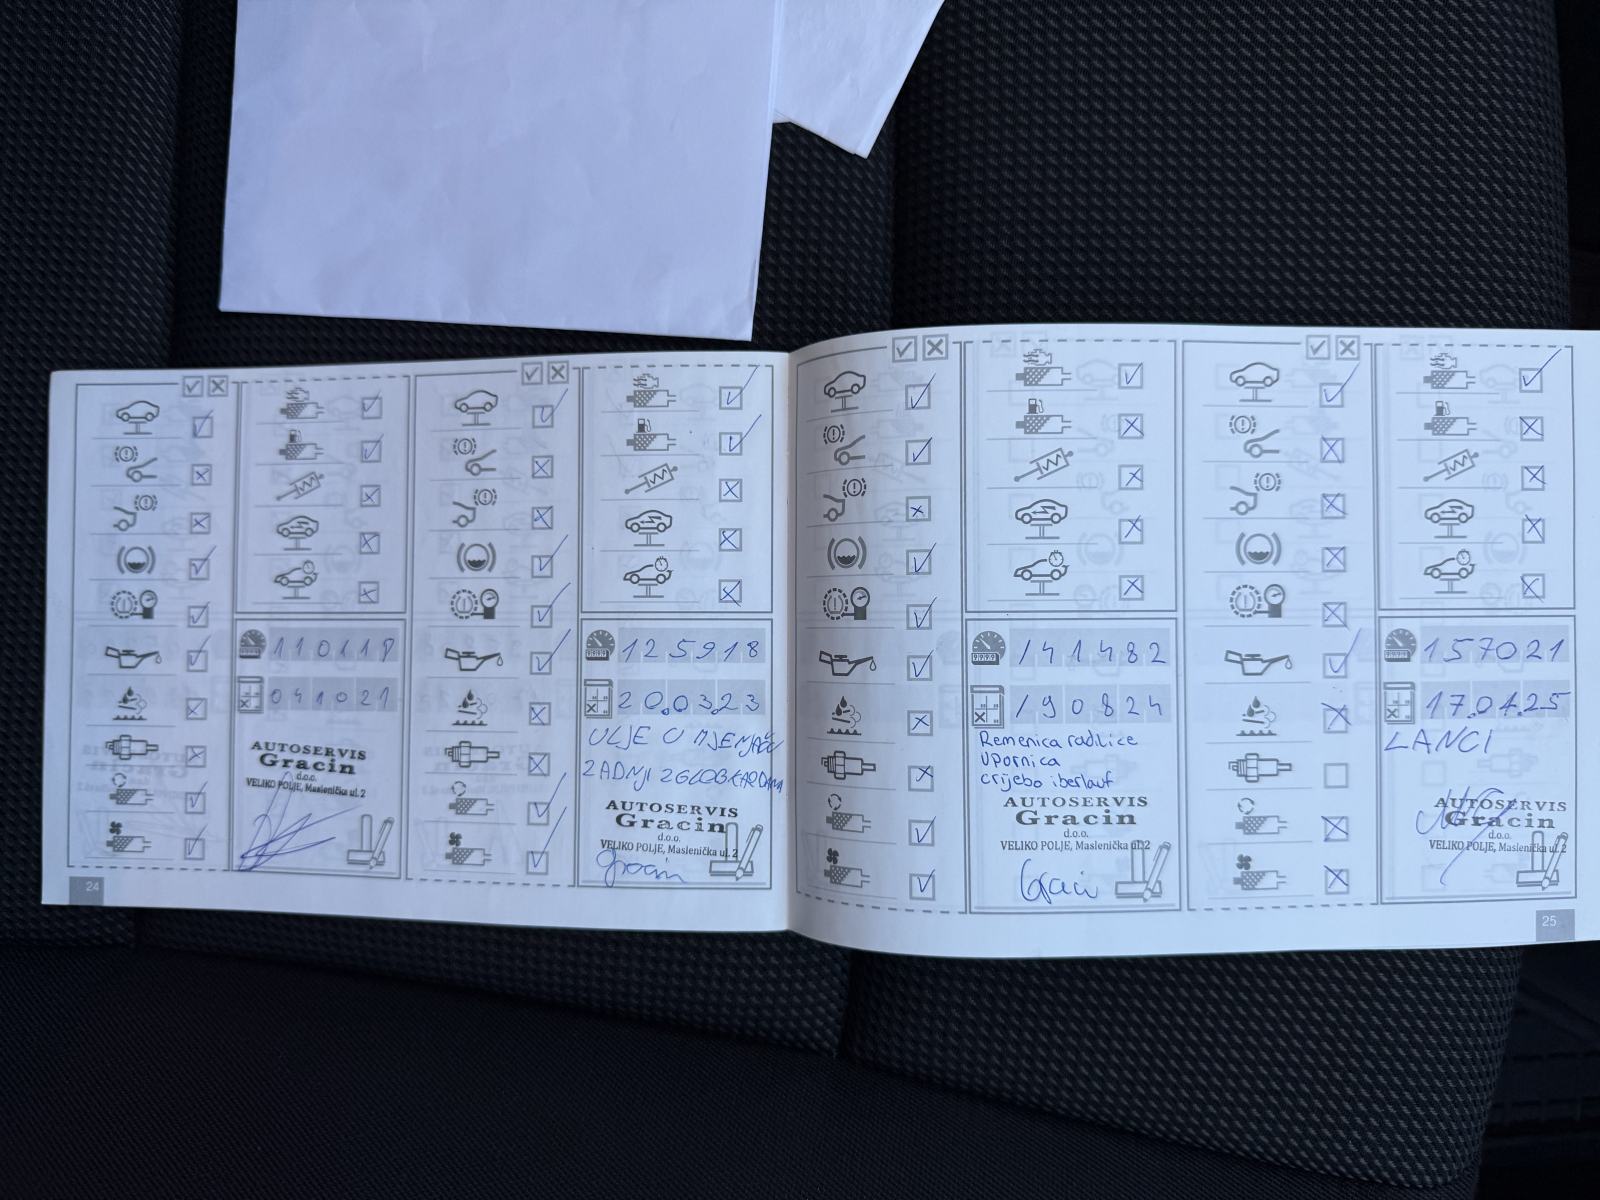 110118
041021
AUTOSERVIS
Gracin
d.o.o.
VELIKO POLJE, Maslenička ul. 2
24
125918
20.03.23
ULJE U MJENJAČU
ZADNJI ZGLOB KARDANA
AUTOSERVIS
Gracin
d.o.o.
VELIKO POLJE, Maslenička ul. 2
141482
190824
Remenica radilice
Upornica
crijebo iberlauf
AUTOSERVIS
Gracin
d.o.o.
VELIKO POLJE, Maslenička ul. 2
157021
17.01.25
LANCI
AUTOSERVIS
Gracin
d.o.o.
VELIKO POLJE, Maslenička ul. 2
25